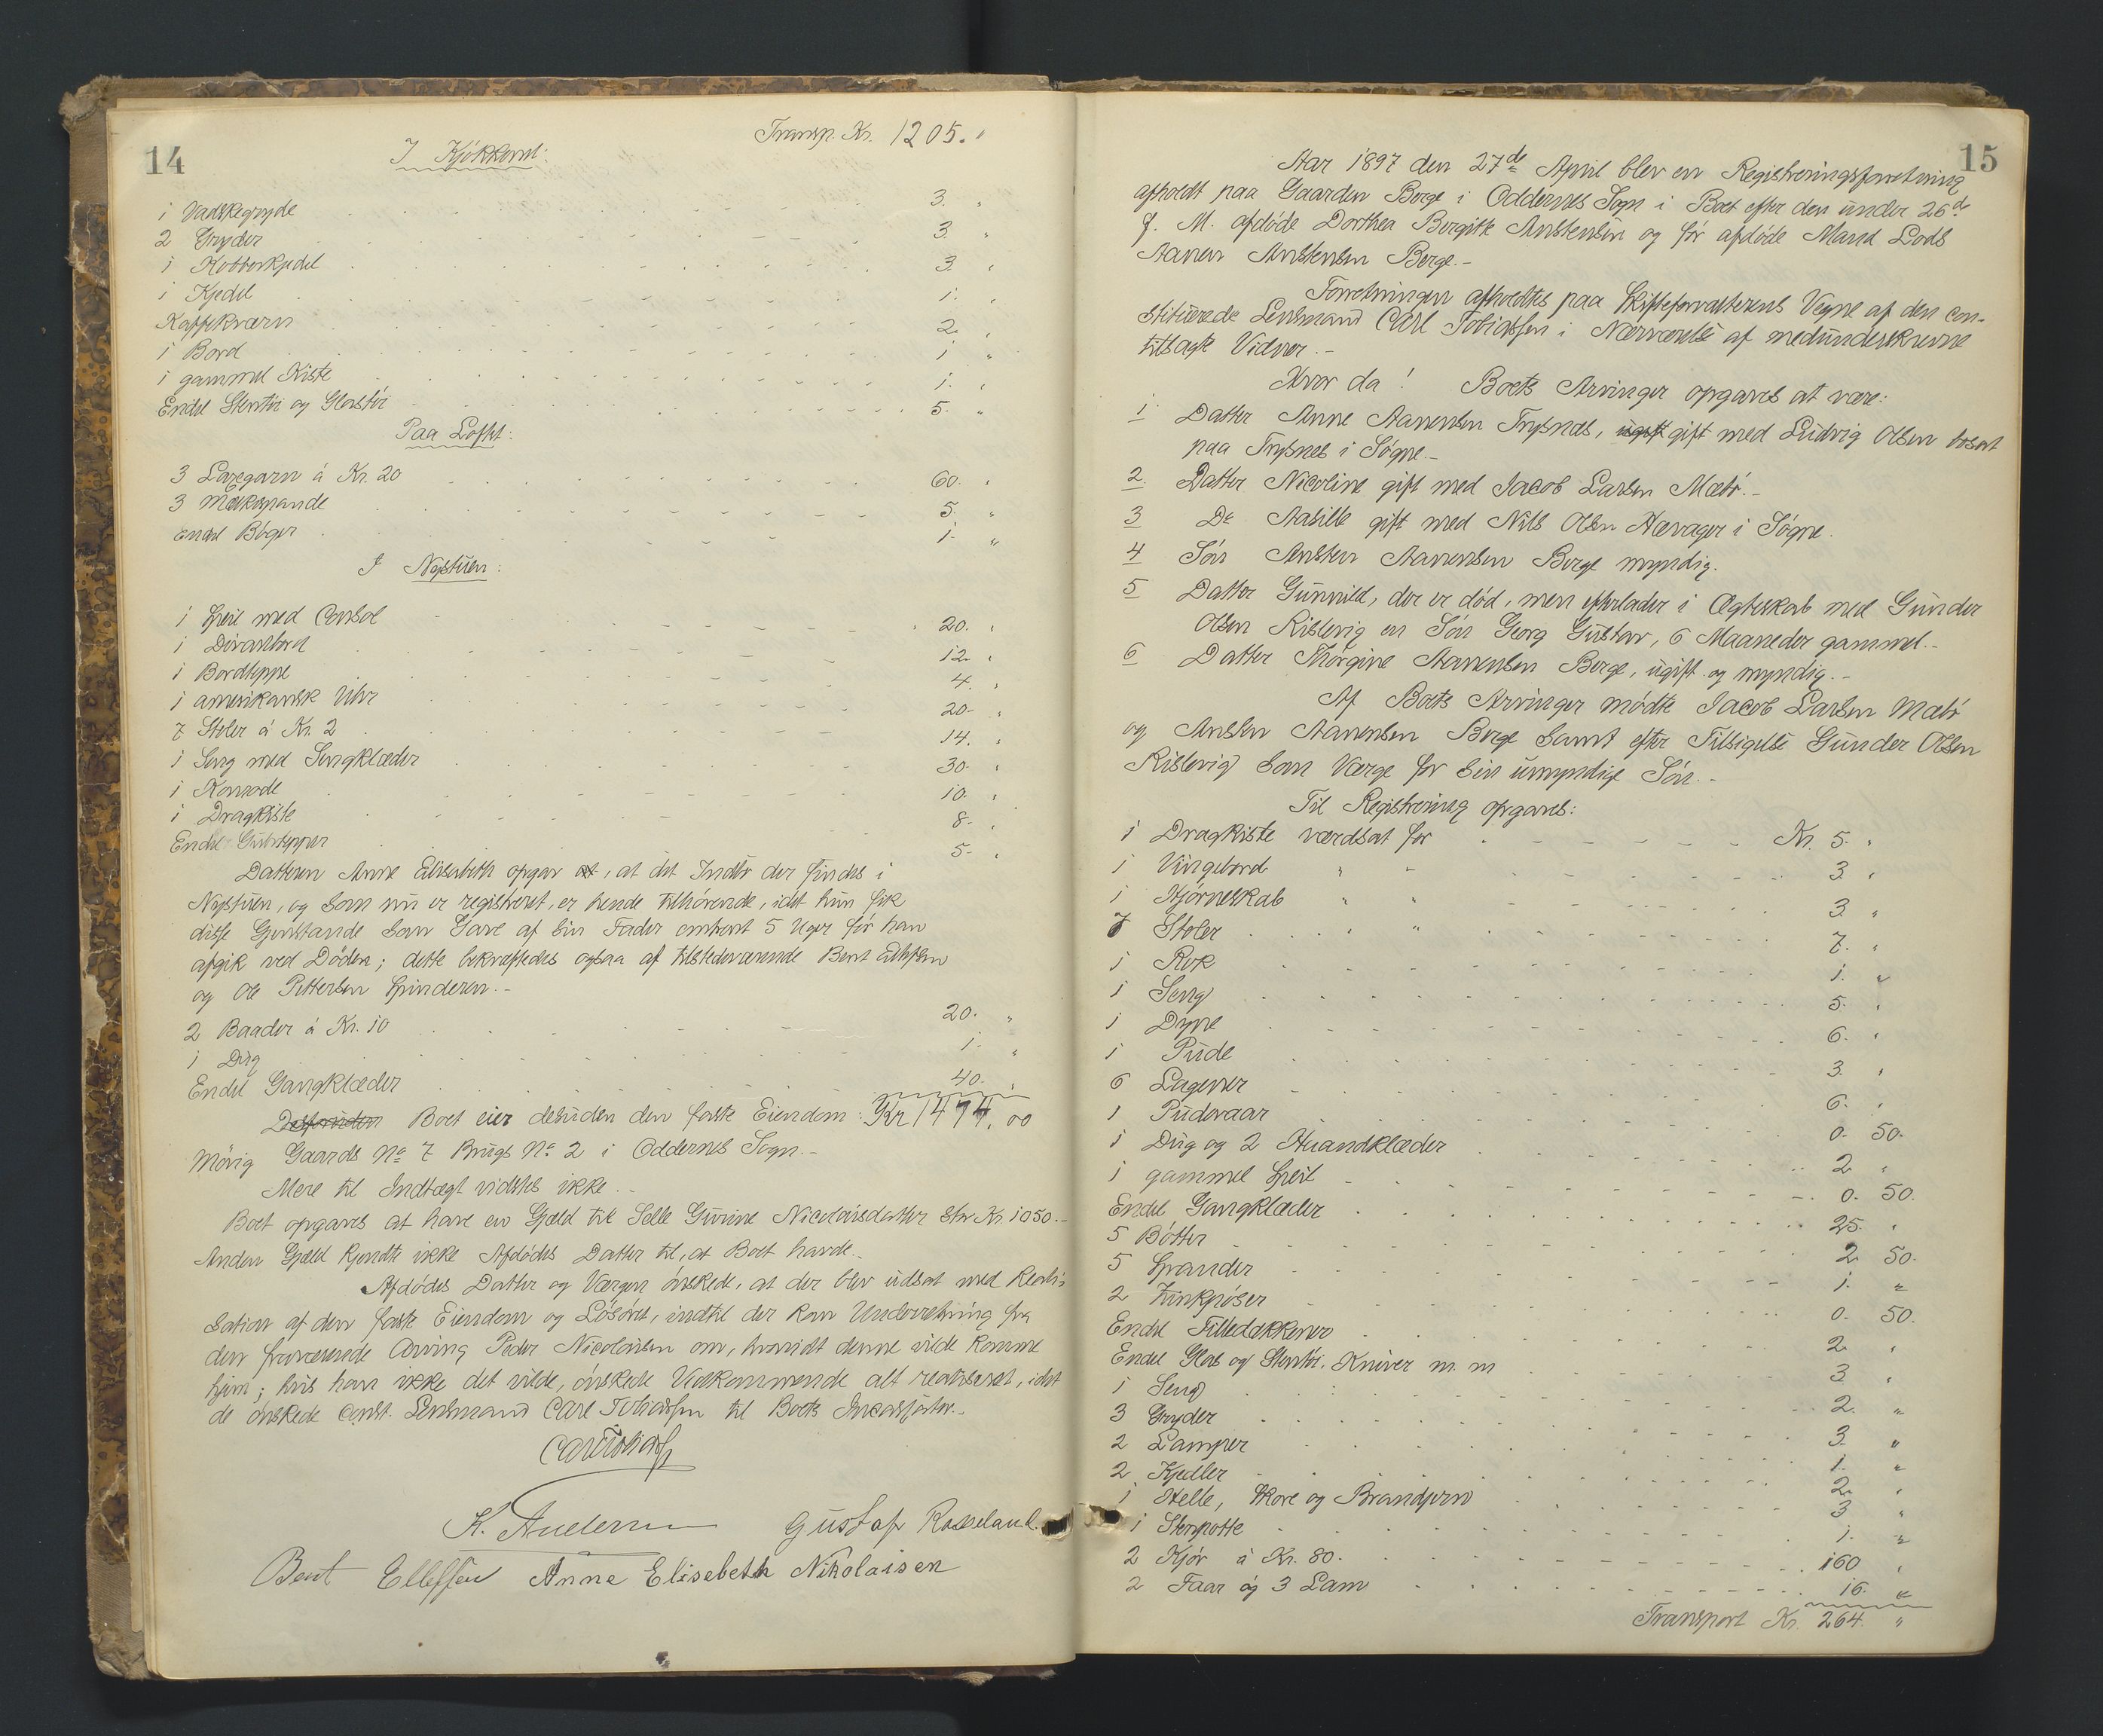 14
Transp. Kr. 1205. "
I Kjøkkenet:
1 Vadskegryde 3. "
2 Gryder 3. "
1 Kobberkjedel 3. "
1 Kjedel 1. "
Kaffekværn 2. "
1 Bord 1 "
1 gammel Kiste 1. "
Endel Stentøi og Glastøi 5. "
Paa Loftet:
3 Laxegarn á Kr. 20 60. "
3 Melkespande 5. "
Endel Bøger 1. "
I Nystuen:
1 Speil med Consol 20. "
1 Divanbord 12. "
1 Bordteppe 4. "
1 amerikansk Uhr 20. "
7 Stoler á Kr. 2 14. "
1 Seng med Sengklæder 30. "
1 Komode 10. "
1 Dragkiste 8. "
Endel Gulvtepper 5. "
Datteren Anne Elisabeth opgav at, at det Indbo der findes i
Nystuen, og som nu er registreret, er hende tilhørende, idet hun fik
disse Gjenstande som Gave af sin Fader omtrent 5 Uger før han
afgik ved Døden; dette bekræftedes ogsaa af tilstedeværende Bent Ellefsen
og Ole Pettersen Spinderen.-
2 Baader á Kr. 10 20. "
1 Dug 1. "
Endel Gangklæder 40. "
Desforuden Boet eier desuden den faste Eiendom: Kr 1494.00
Møvig Gaards No 7 Brugs No 2 i Oddernes Sogn.-
Mere til Indtægt vidstes ikke.-
Boet opgaves at have en Gjæld til Selle Gurine Nicolaisdatter stor Kr. 1050.-
Anden Gjæld kjendte ikke Afdødes Datter til, at Boet havde.-
Afdødes Datter og Værgen ønskede, at der blev udsat med Reali-
sation af den faste Eiendom og Løsøret, indtil der kom Underretning fra
den fraværende Arving Peder Nicolaisen om, hvorvidt denne vilde komme
hjem; hvis han ikke det vilde, ønskede Vedkommende alt realiseret, idet
de ønskede const. Lensmand Carl Tobiassen til Boets Incassator.-
Carl Tobiass
K. Andersen Gustaf Rosseland.
Bent Ellefsen Anne Elisebeth Nikolaisen
15
Aar 1897 den 27de April blev en Registreringsforretning
afholdt paa Gaarden Berge i Oddernes Sogn i Boet efter den under 26de
f. M. afdøde Dorthea Bergitte Anstensen og før afdøde Mand Lods
Aanen Anstensen Berge.-
Forretningen afholdtes paa Skifteforvalterens Vegne af den con-
stituerede Lensmand Carl Tobiassen i Nærværelse af medunderskrevne
tilsagte Vidner.-
Hvor da! Boets Arvinger opgaves at være:
1 Datter Anne Aanensen Trysnes, ugift gift med Ludvig Olsen bosat
paa Trysnes i Søgne.-
2. Datter Nicoline gift med Jacob Larsen Mæbø.-
3 Do Aasille gift med Nils Olsen Hævager i Søgne.
4 Søn Ansten Aanensen Berge myndig.
5 Datter Gunnild, der er død, men efterlader i Ægteskab med Gunder
Olsen Kislevig en Søn Georg Gustav, 6 Maaneder gammel.-
6 Datter Thorgine Aanensen Berge, ugift og myndig.-
Af Boets Arvinger mødte Jacob Larsen Mæbø
og Ansten Aanensen Berge samt efter Tilsigelse Gunder Olsen
Kislevig som Værge for sin umyndige Søn.-
Til Registrering opgaves:
1 Dragkiste værdsat for Kr. 5. "
1 Vingebord " " 3. "
1 Hjørneskab " " 3. "
7 Stoler " 7. "
1 Rok 1. "
1 Seng 5. "
1 Dyne 6. "
1 Pude 3. "
6 Lagener 6. "
1 Pudevaar 0. 50.
1 Dug og 2 Haandklæder 2. "
1 gammel Speil 0. 50.
Endel Gangklæder 25. "
5 Bøtter 2. 50.
5 Spander 1. "
2 Zinkpøser 0. 50.
Endel Filledækkener 2. "
Endel Glas og Stentøi, Kniver m. m 3. "
1 Seng 2. "
3 Gryder 3. "
2 Lamper 1. "
2 Kjedler 2. "
1 Helle, Skore og Brandjern 3 "
1 Stenpotte 1. "
2 Kjør á Kr. 80. 160 "
2 Faar og 3 Lam 16. "
Transport Kr. 264. "